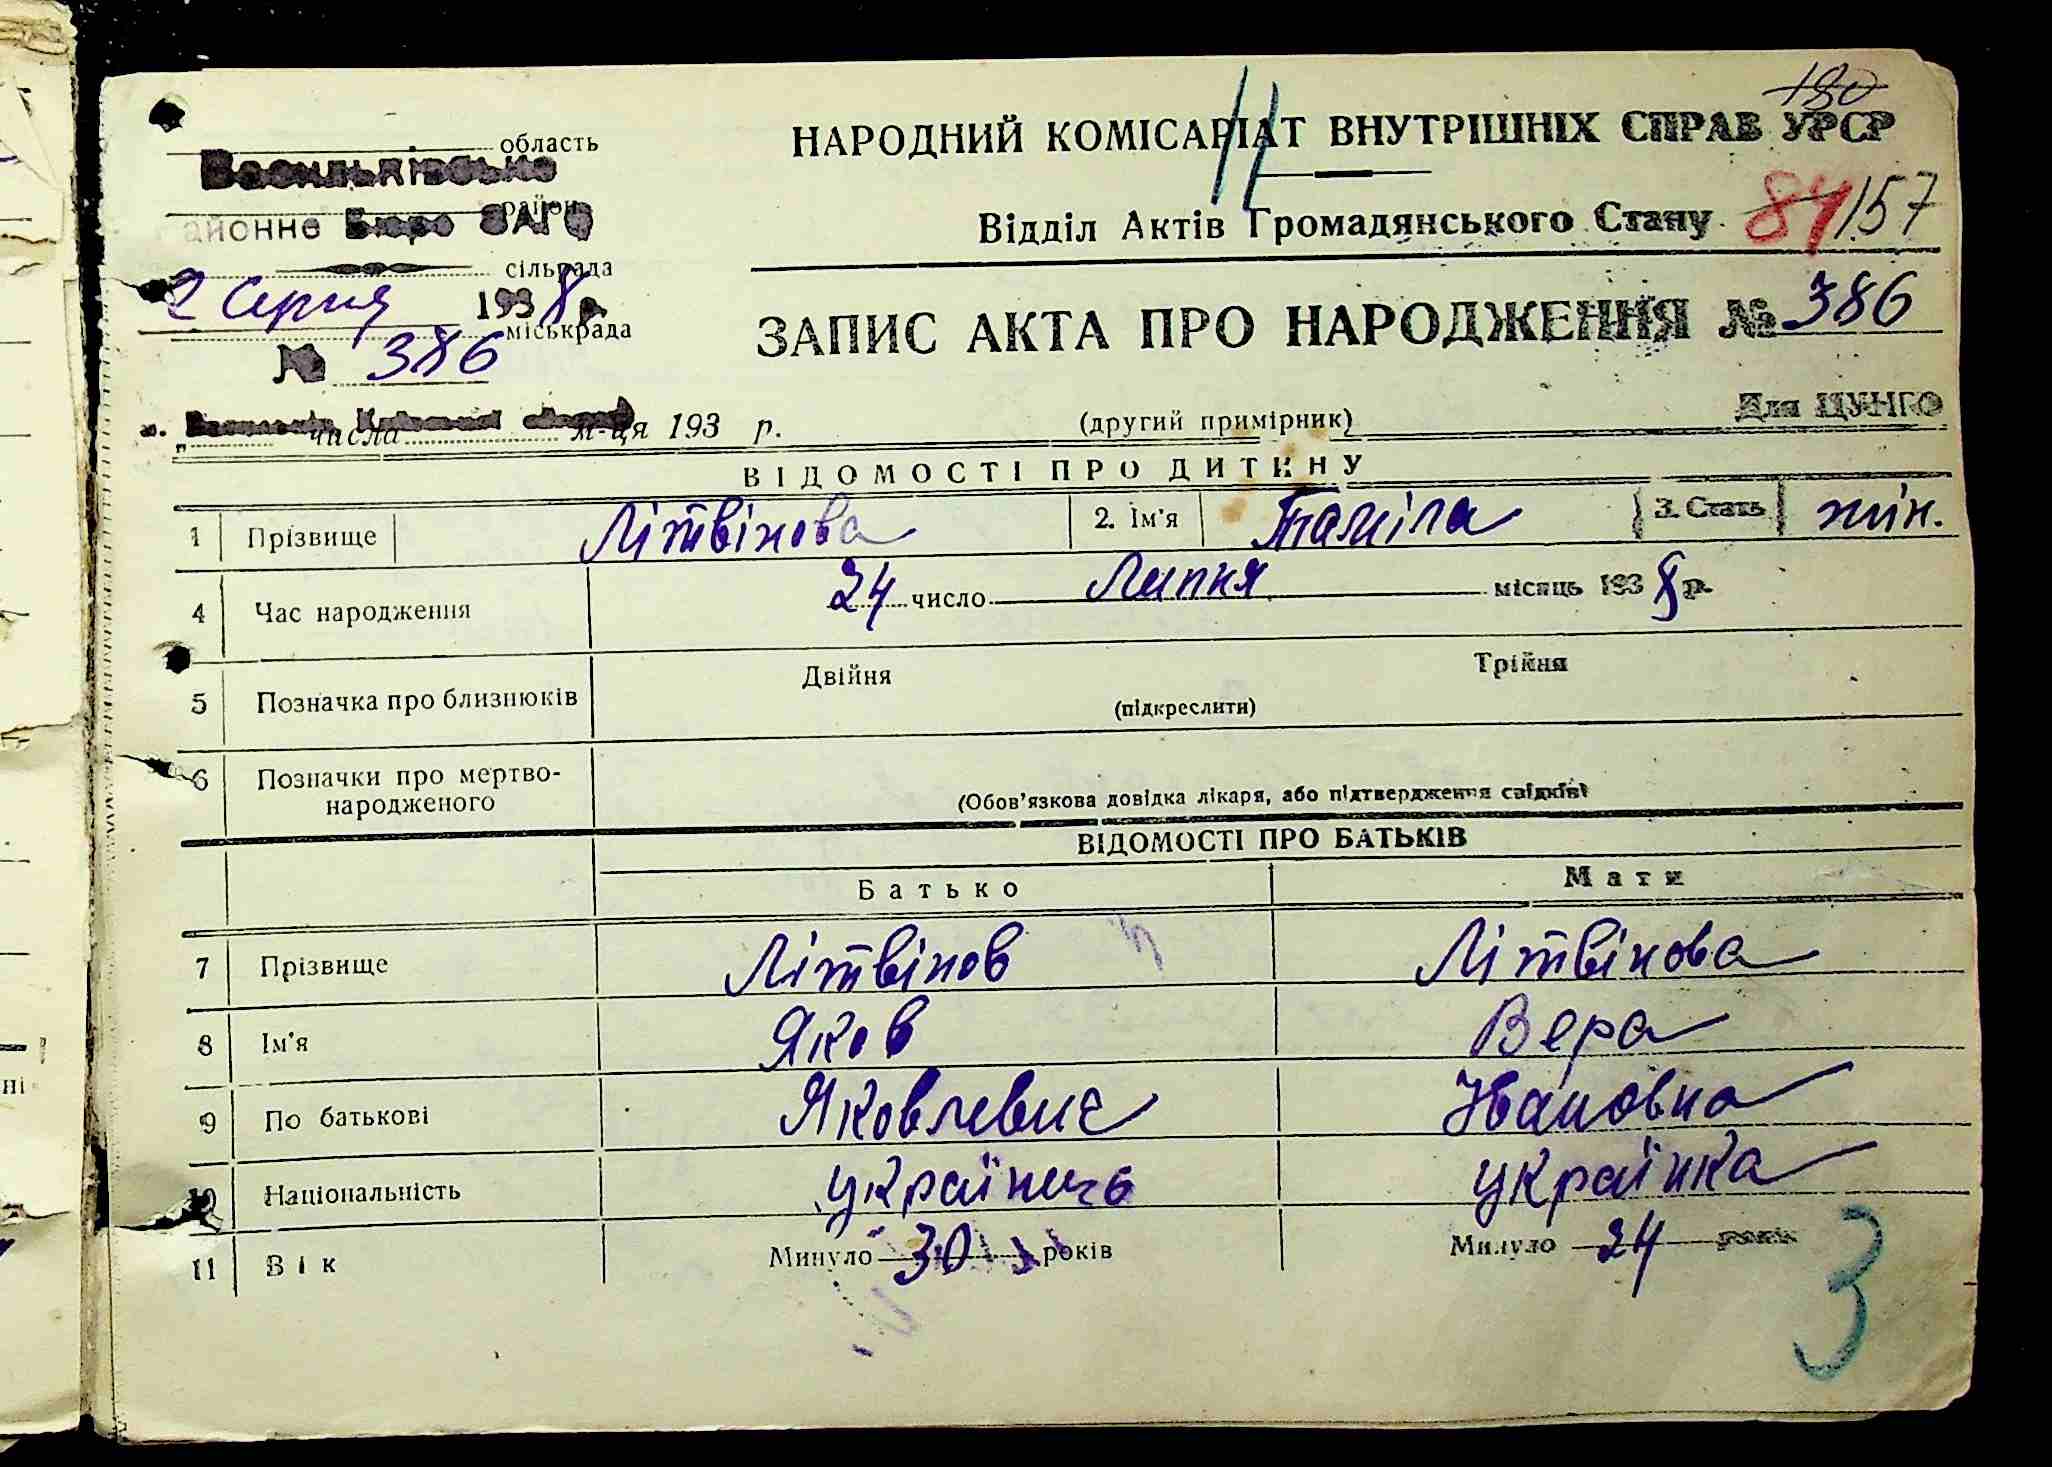 180
НАРОДНИЙ КОМІСАРІАТ ВНУТРІШНІХ СПРАВ УРСР
11
область
Васильківське
район
айонне Бюро ЗАГС
Відділ Актів Громадянського Стану 84 157
сільрада
2 Серпня 1938 р.
міськрада
№ 386
ЗАПИС АКТА ПРО НАРОДЖЕННЯ № 386
Для ЦУНГО
м. Васильків, Київської області
„ числа м-ця 193 р.
(другий примірник)
ВІДОМОСТІ ПРО ДИТИНУ
1 Прізвище Літвінова 2. Ім'я Таміла 3. Стать жін.
4 Час народження 24 число Липня місяць 1938 р.
5 Позначка про близнюків Двійня Трійня
(підкреслити)
6 Позначки про мертво-
народженого
(Обов'язкова довідка лікаря, або підтвердження свідків)
ВІДОМОСТІ ПРО БАТЬКІВ
Батько Мати
7 Прізвище Літвінов Літвінова
8 Ім'я Яков Вера
9 По батькові Яковлевич Івановна
10 Національність українець українка
11 Вік Минуло 30 років Минуло 24 років
3
ні